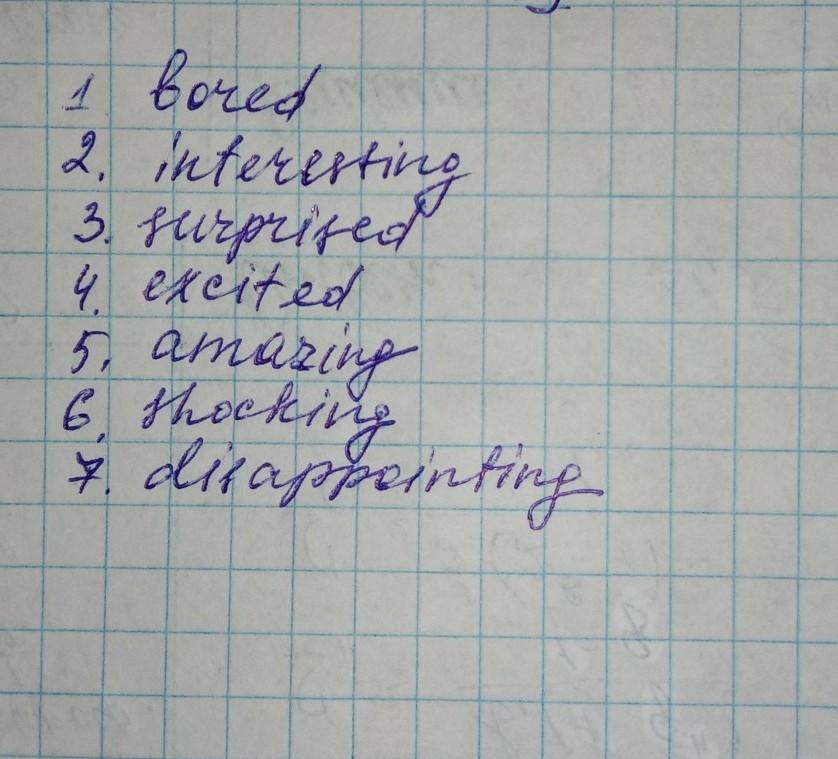 1 bored
2. interesting
3. surprised
4. excited
5. amazing
6. shocking
7. disappointing